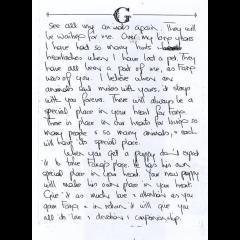 G
see all my animals again. They
will be waiting for me. Over my long years
I have had so many hurts +
heartaches when I have lost a pet, they
have all been a part of me, so Fargo
was of you. I believe when an
animals soul mixes with yours, it stays
with you forever. There will always be a
special place in your heart for Fargo.
There is place in our hearts for things so
many people + so many animals, + each
will have its special place.
When you get a puppy don't expect
it to take Fargo's place. He has his own
special place in your heart. Your new puppy
will make his own place in your heart.
Give it as much love + attention as you
gave Fargo + in return it will give you
all its love + devotion + companionship.